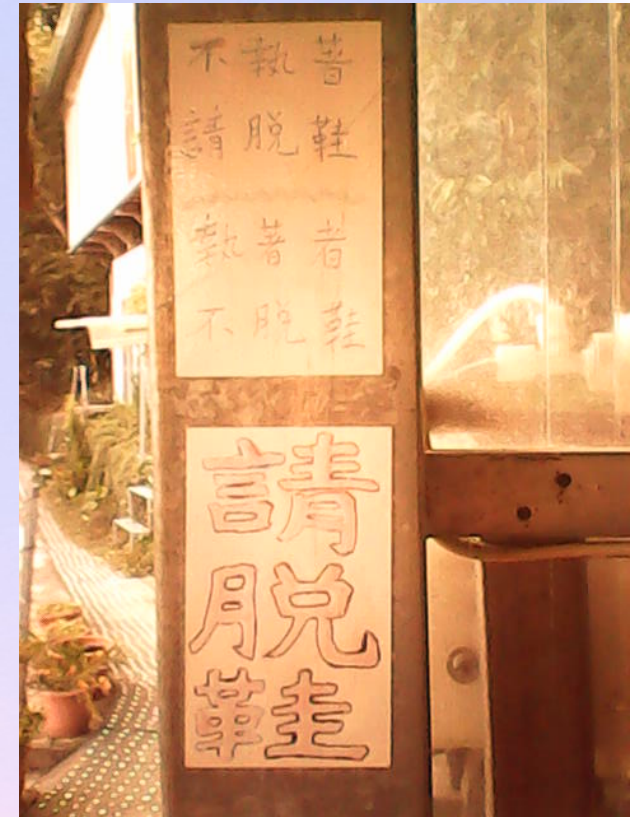 不執著
請脱鞋
執著者
不脱鞋
請
脱
鞋